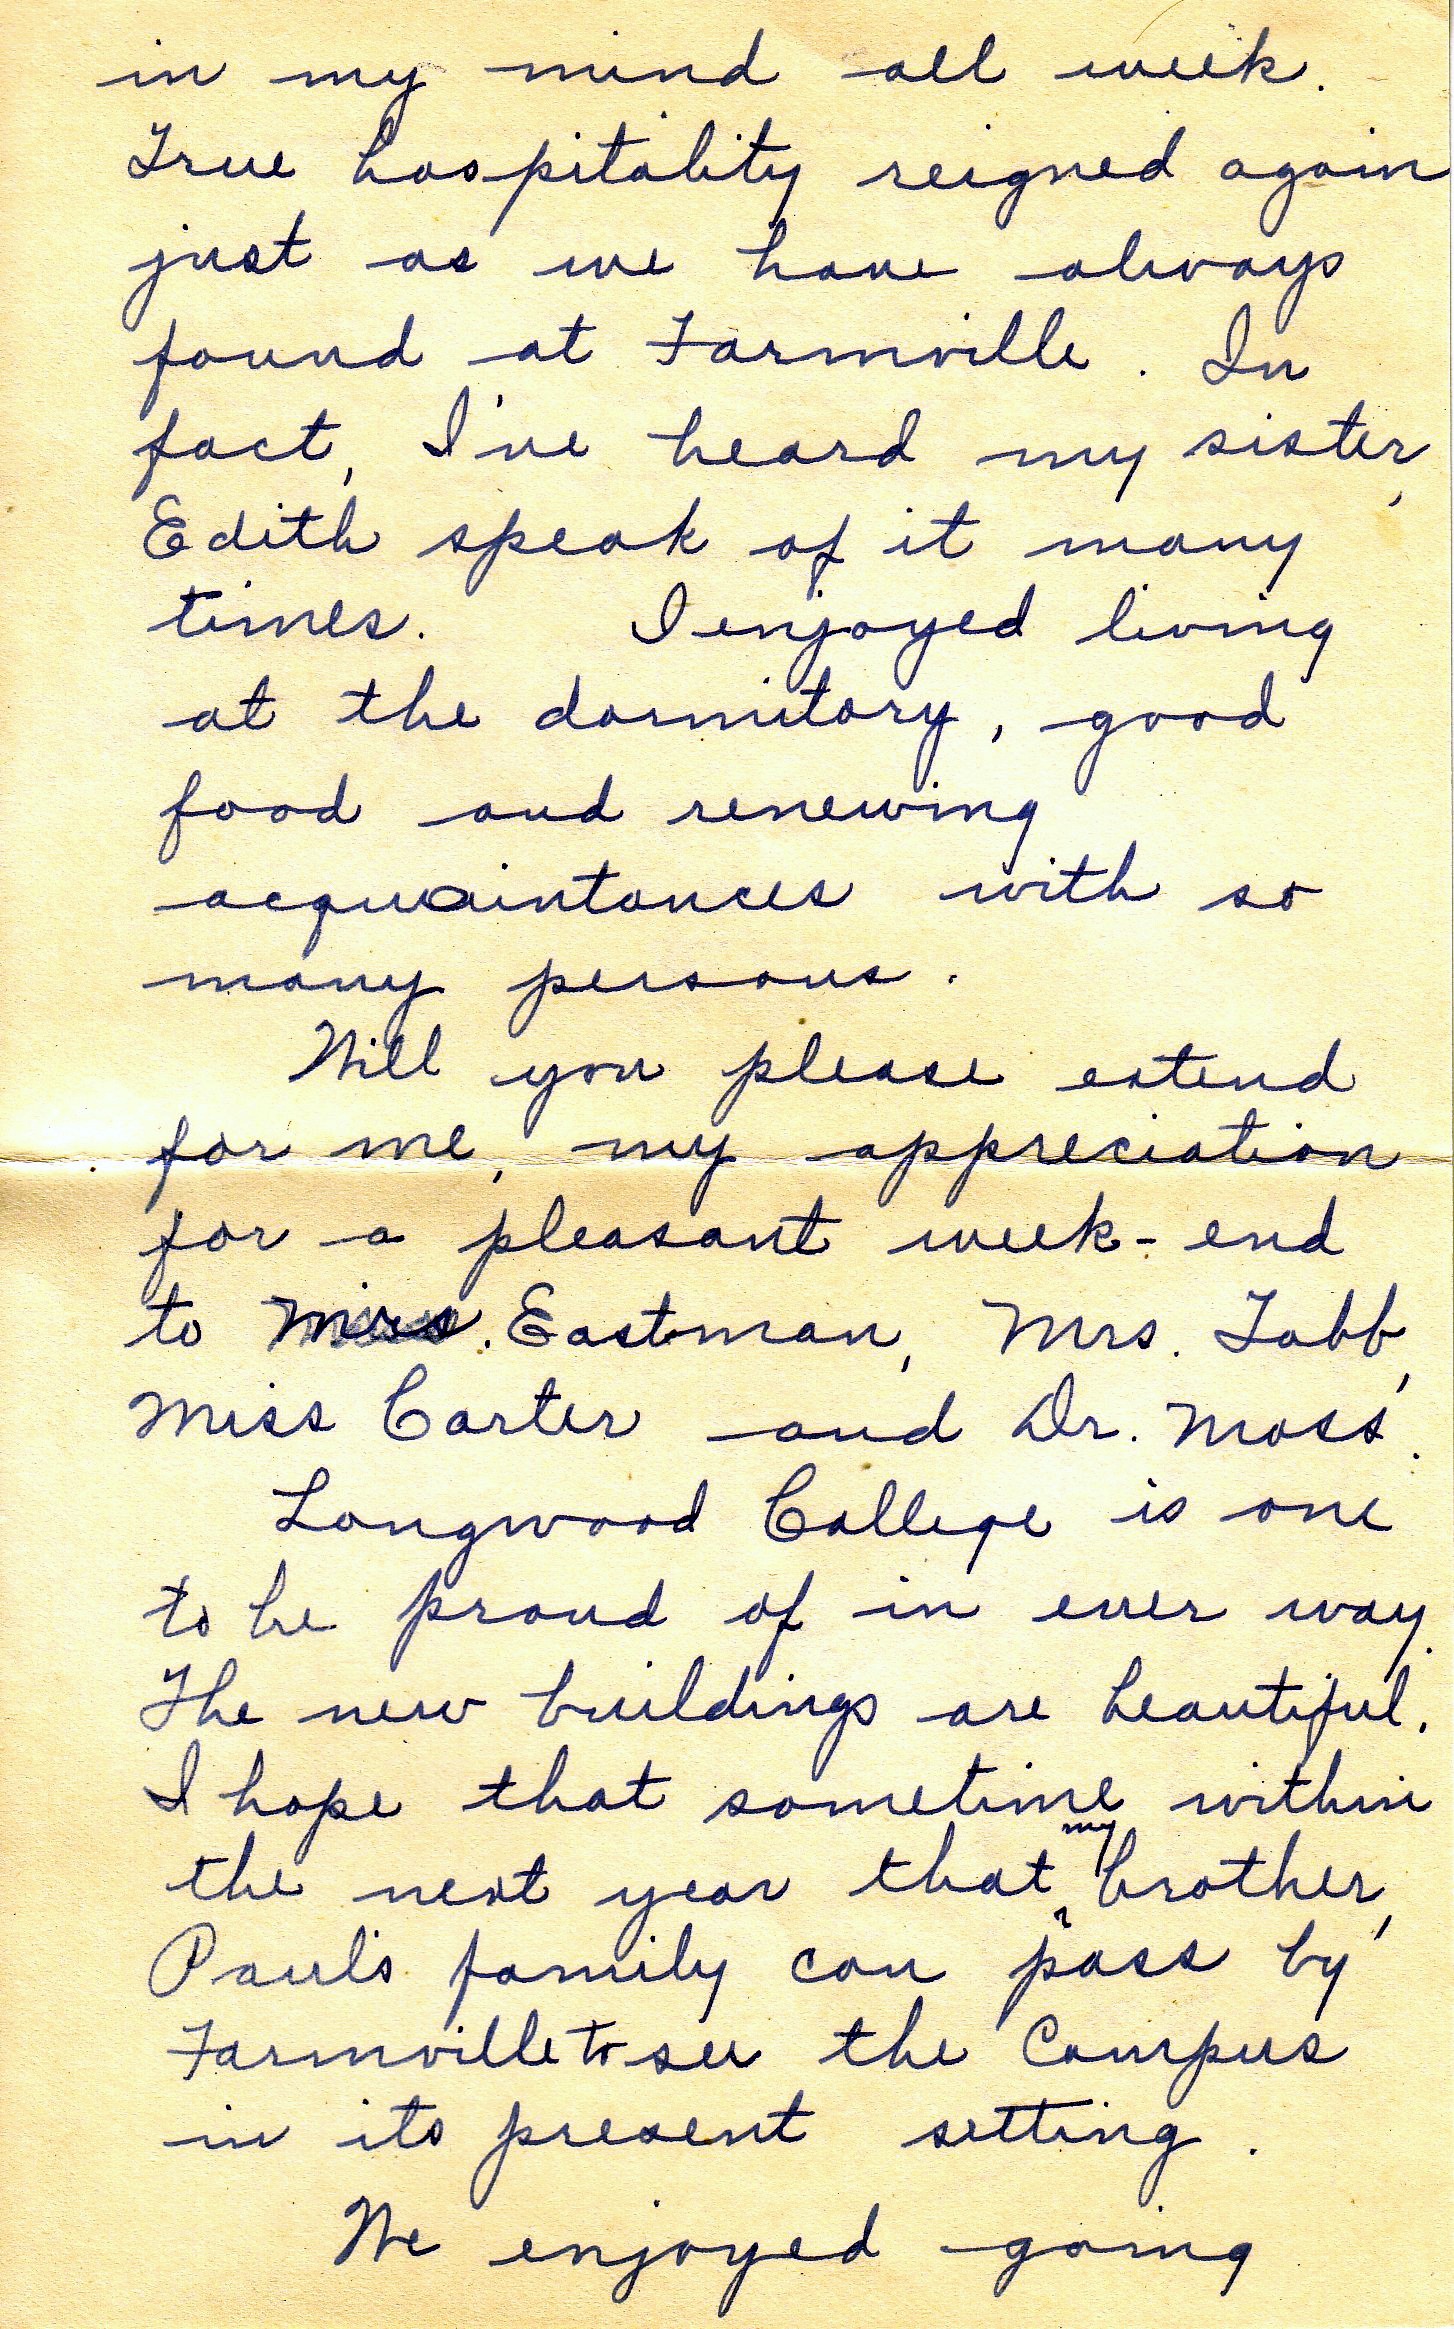 in my mind all week.
True hospitality reigned again
just as we have always
found at Farmville. In
fact, I've heard my sister,
Edith speak of it many
times. I enjoyed living
at the dormitory, good
food and renewing
acquaintances with so
many persons.
Will you please extend
for me, my appreciation
for a pleasant week-end
to Mrs. Eastman, Mrs. Tabb,
Miss Carter and Dr. Moss.
Longwood College is one
to be proud of in ever way.
The new buildings are beautiful.
I hope that sometime within
the next year that my brother,
Paul's family can pass by
Farmville to see the Campus
in its present setting.
We enjoyed going